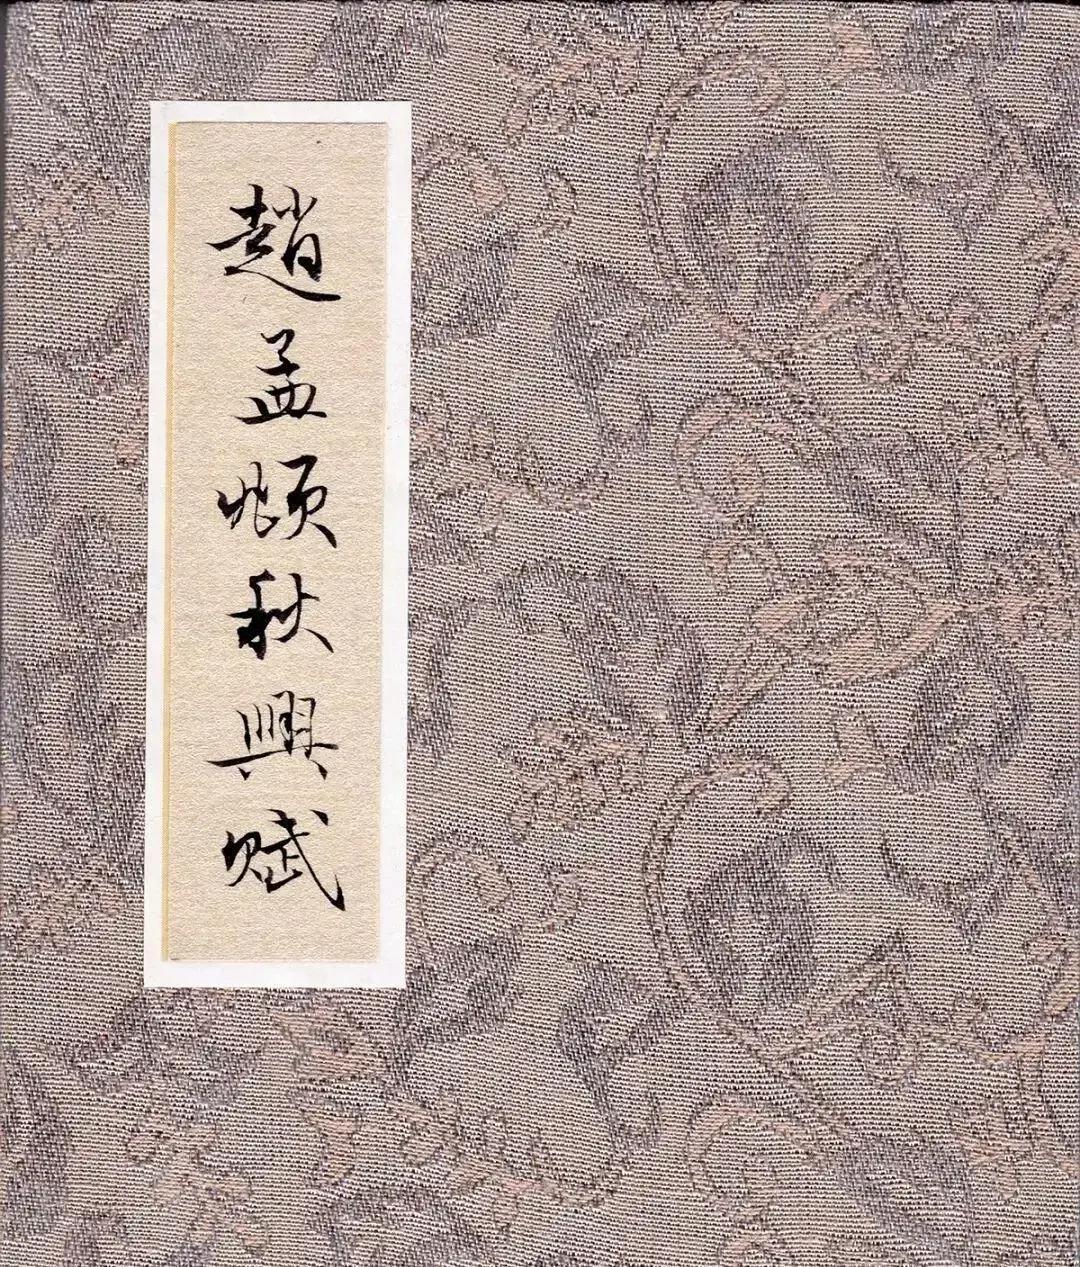 趙孟頫秋興賦